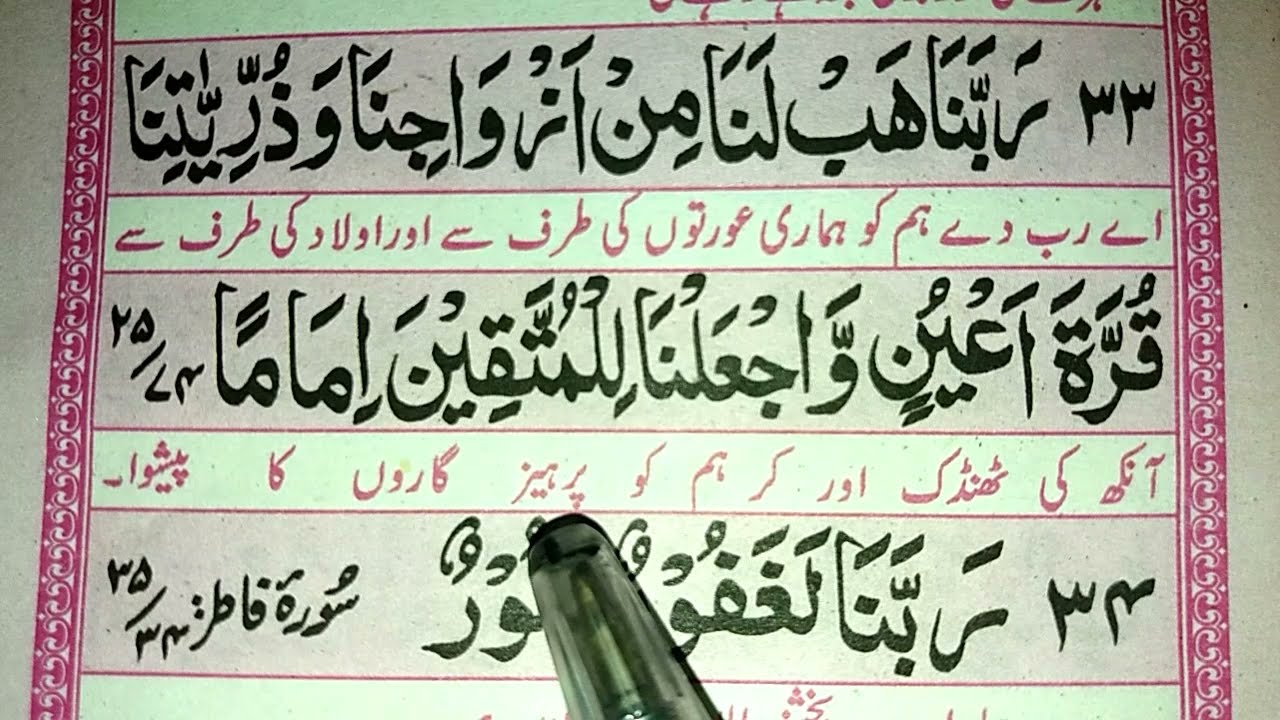 ۳۳ رَبَّنَا هَبْ لَنَا مِنْ اَزْوَاجِنَا وَذُرِّیّٰتِنَا
اے رب دے ہم کو ہماری عورتوں کی طرف سے اور اولاد کی طرف سے
قُرَّةَ اَعْیُنٍ وَّاجْعَلْنَا لِلْمُتَّقِیْنَ اِمَامًا ۲۵/۷۴
آنکھ کی ٹھنڈک اور کر ہم کو پرہیز گاروں کا پیشوا۔
۳۴ رَبَّنَا لَغَفُوْرٌ سُورۃ فاطر: ۳۵/۳۴